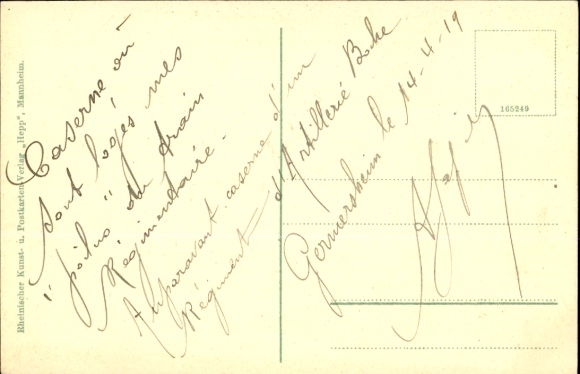 Caserne où
sont logés mes
"poilus" du train
Régimentaire.
Auparavant caserne d'un
Régiment d'Artillerie Boche
Germersheim le 14-4-19
165249
Rheinischer Kunst- u. Postkarten-Verlag „Hepp", Mannheim.